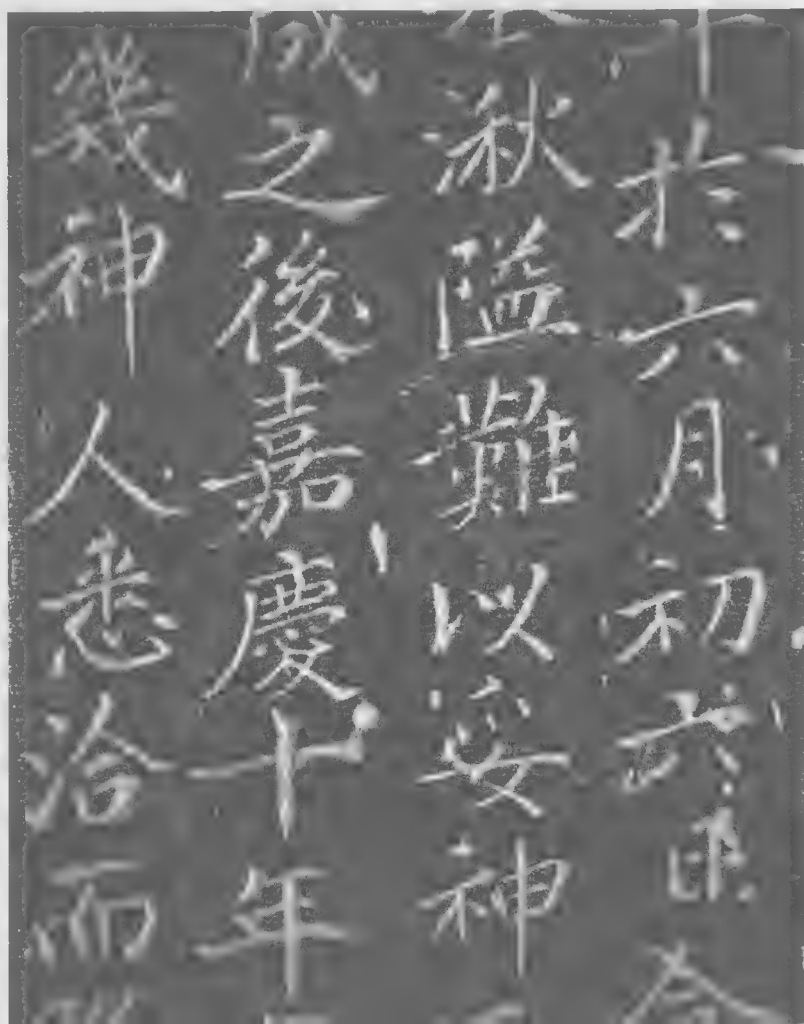 於六月初六
湫隘難以妥神
之後嘉慶十年
幾神人悉洽而